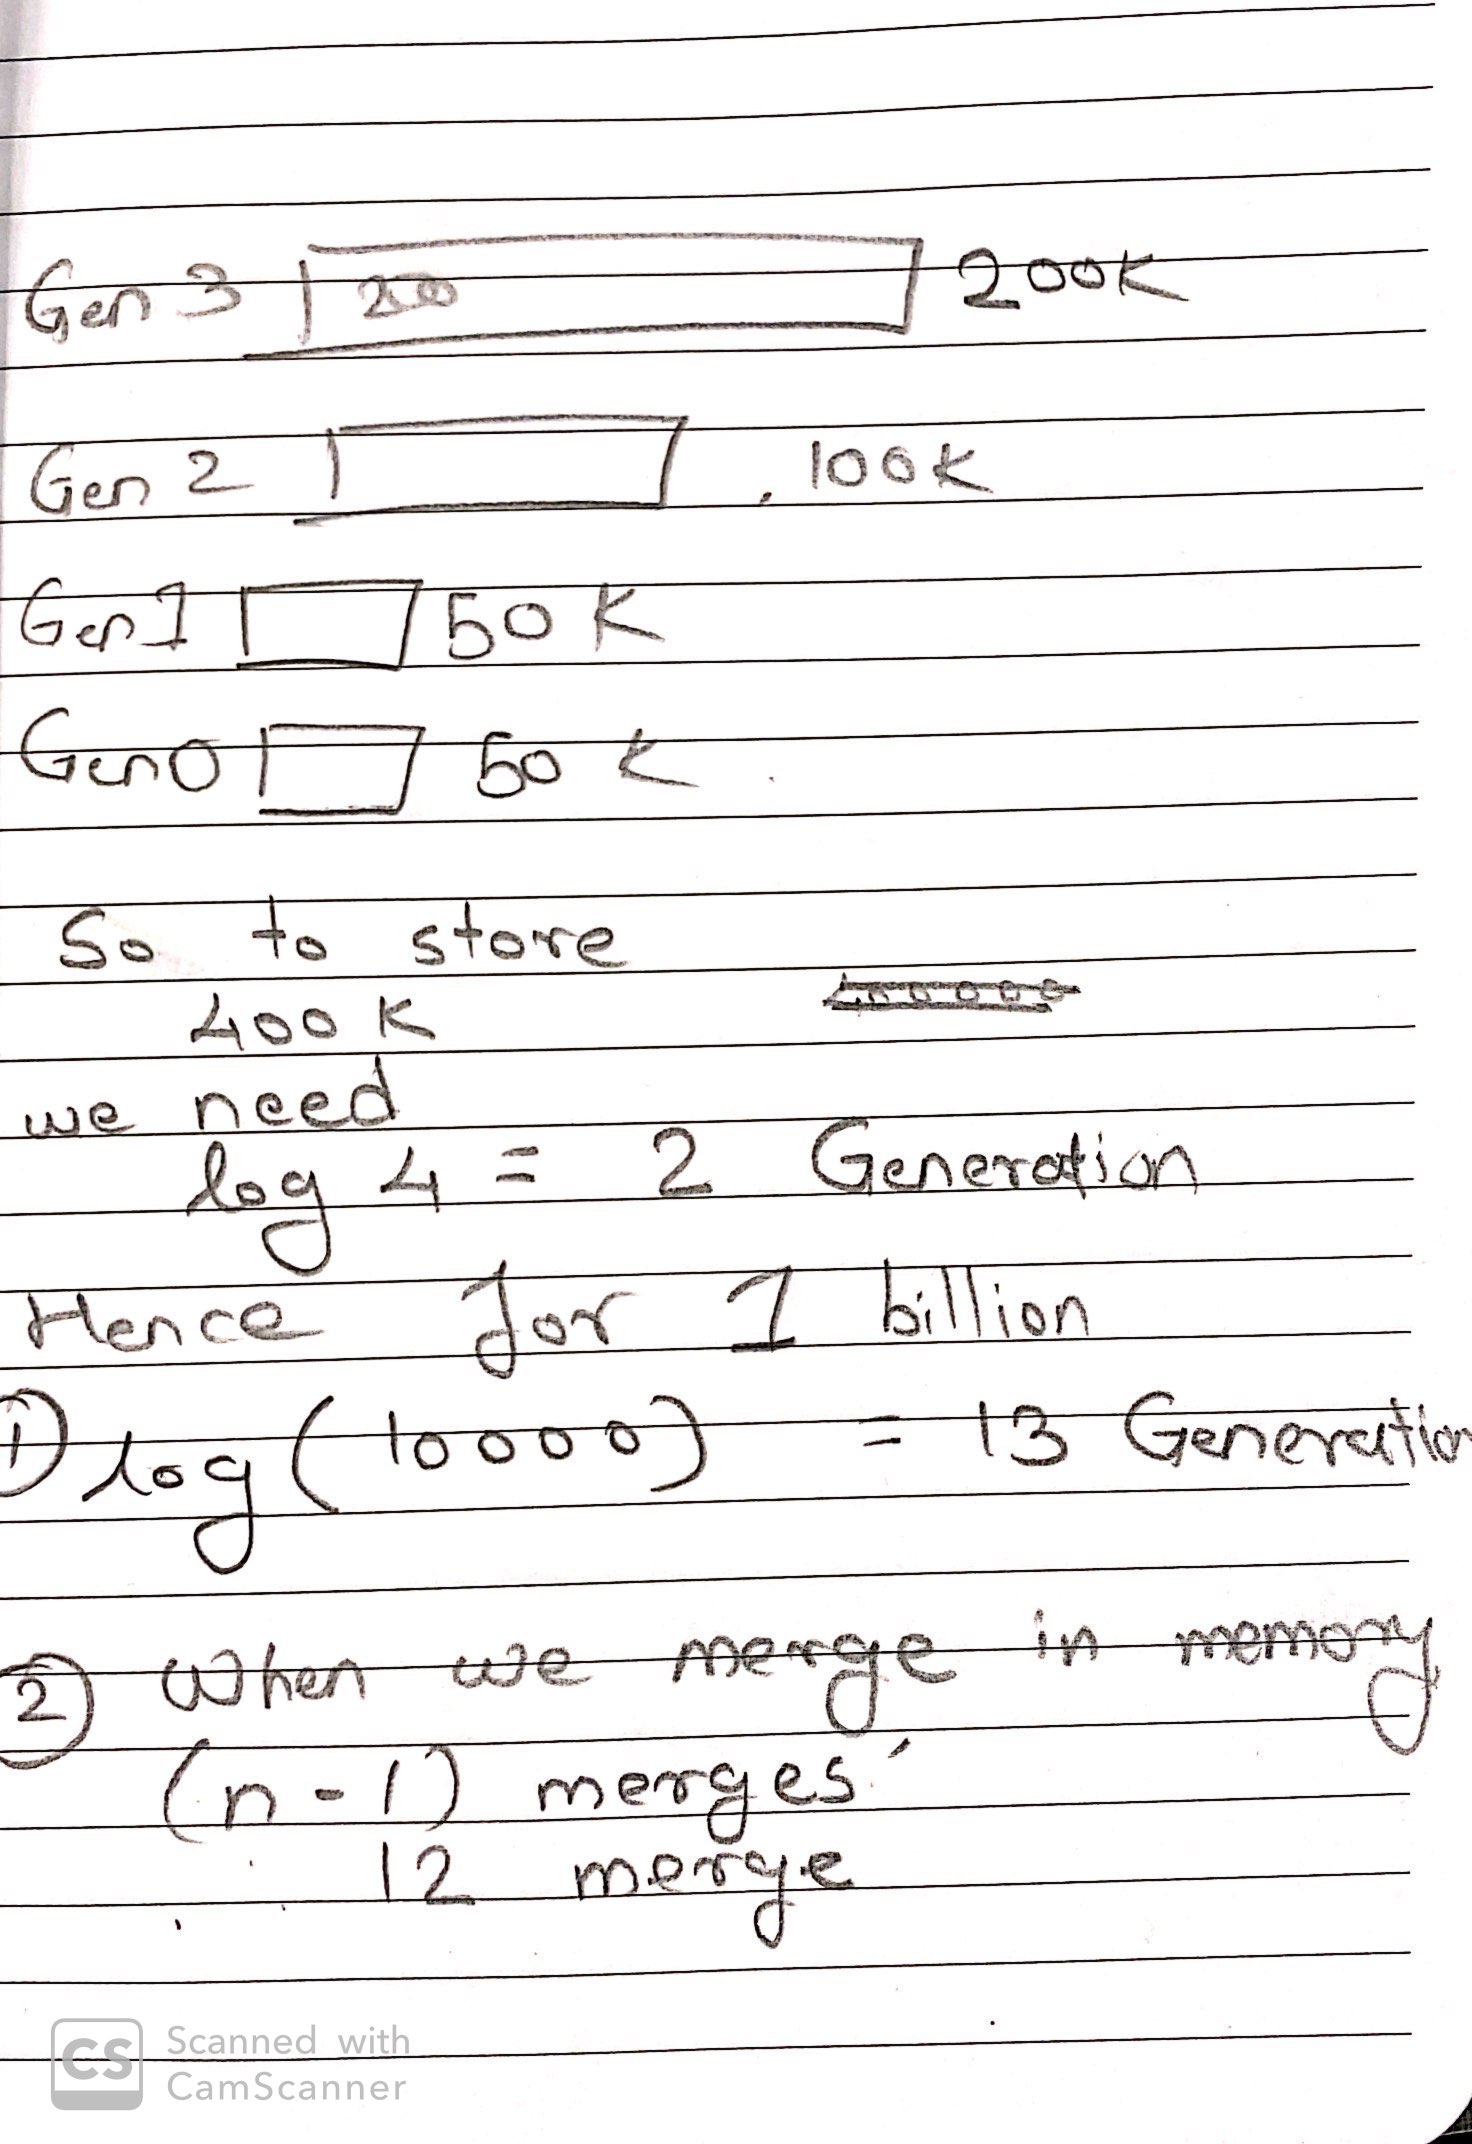 Gen 3 200 200K
Gen 2 100K
Gen 1 50K
Gen 0 50K
So to store
400K
we need
log 4 = 2 Generation
Hence for 1 billion
① log (10000) = 13 Generation
② When we merge in memory
(n-1) merges
12 merge
CS Scanned with
CamScanner